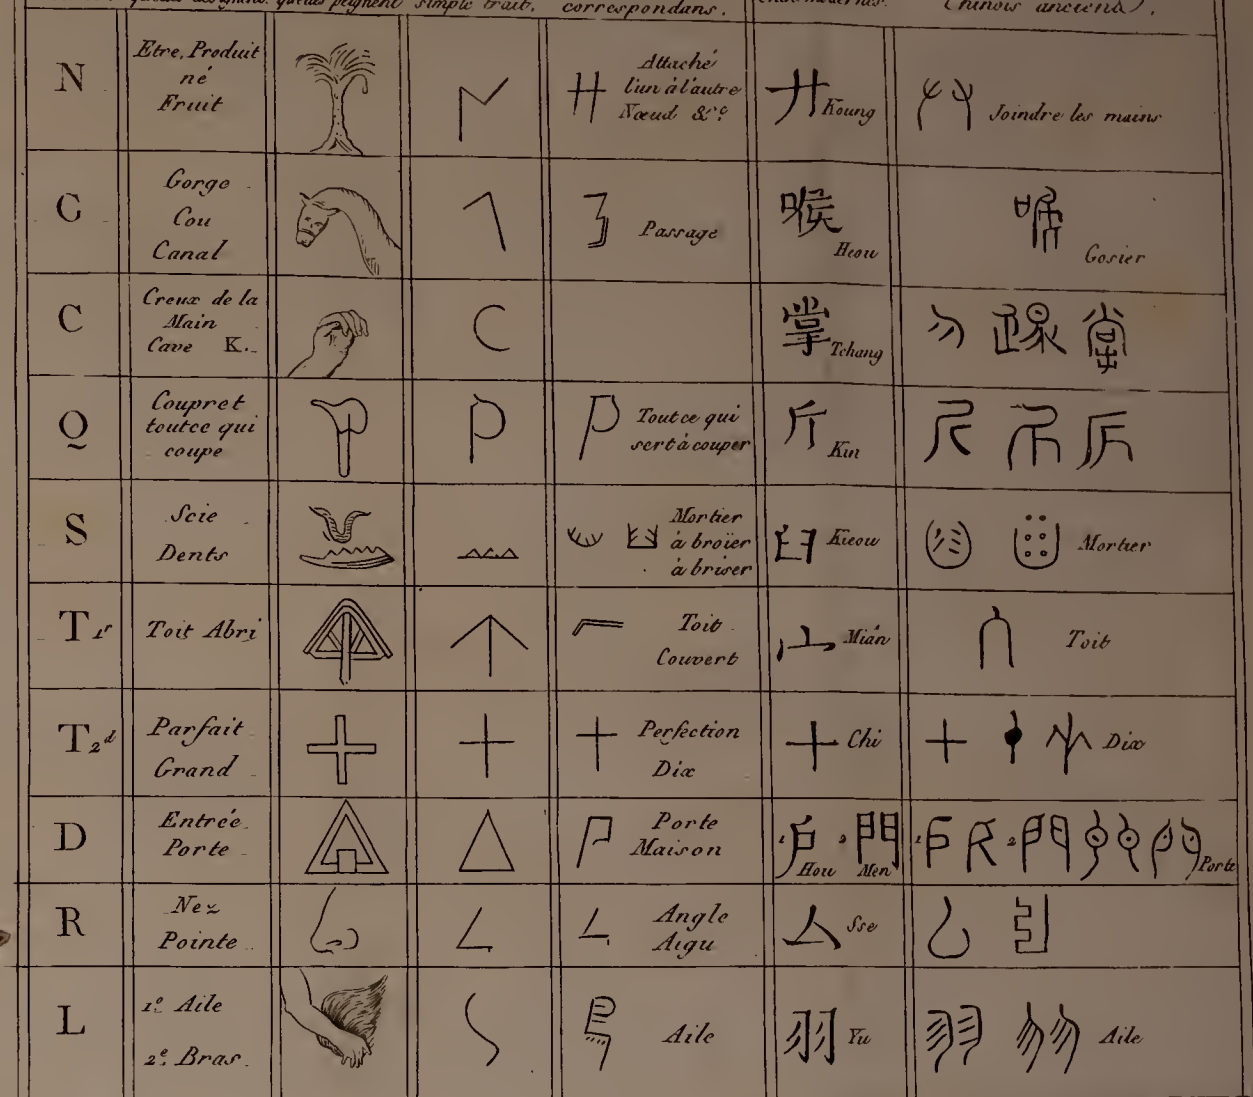 simple trait.
correspondans.
Chinois anciens).
N
Etre, Produit
né
Fruit
Attaché
l'un à l'autre
Nœud &c.
廾 Koung
Joindre les mains
G
Gorge
Cou
Canal
Passage
喉
Heou
Gosier
C
Creux de la
Main
Cave K.
掌
Tchang
Q
Couperet
toutce qui
coupe
Toutce qui
sert à couper
斤
Kin
S
Scie
Dents
Mortier
à broïer
à briser
臼 Kieou
Mortier
T 1r
Toit Abri
Toit
Couvert
宀 Mián
Toit
T 2d
Parfait
Grand
Perfection
Dix
十 Chi
Dix
D
Entrée
Porte
Porte
Maison
1 戶 2 門
Hou Men
1 2
Porte
R
Nez
Pointe
Angle
Aigu
厶 Sse
L
1º Aile
2e Bras.
Aile
羽 Yu
Aile